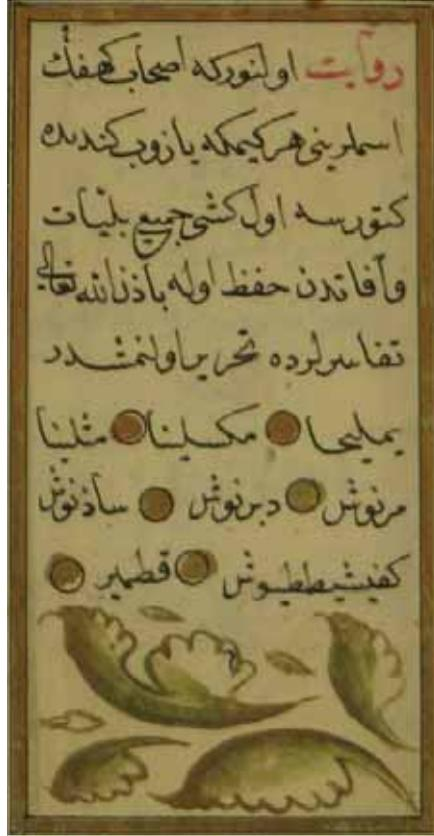 روایت اولنوركه اصحاب كهفڭ
اسملرینی هركیمكه یازوب كندیده
كتورسه اول كشی جمیع بلیات
وآفاتدن حفظ اوله باذن الله تعالی
تفاسیرلرده تحریر اولنمشدر
یملیحا مكسلینا مثلینا
مرنوش دبرنوش ساذنوش
كفیشیططیوش قطمیر